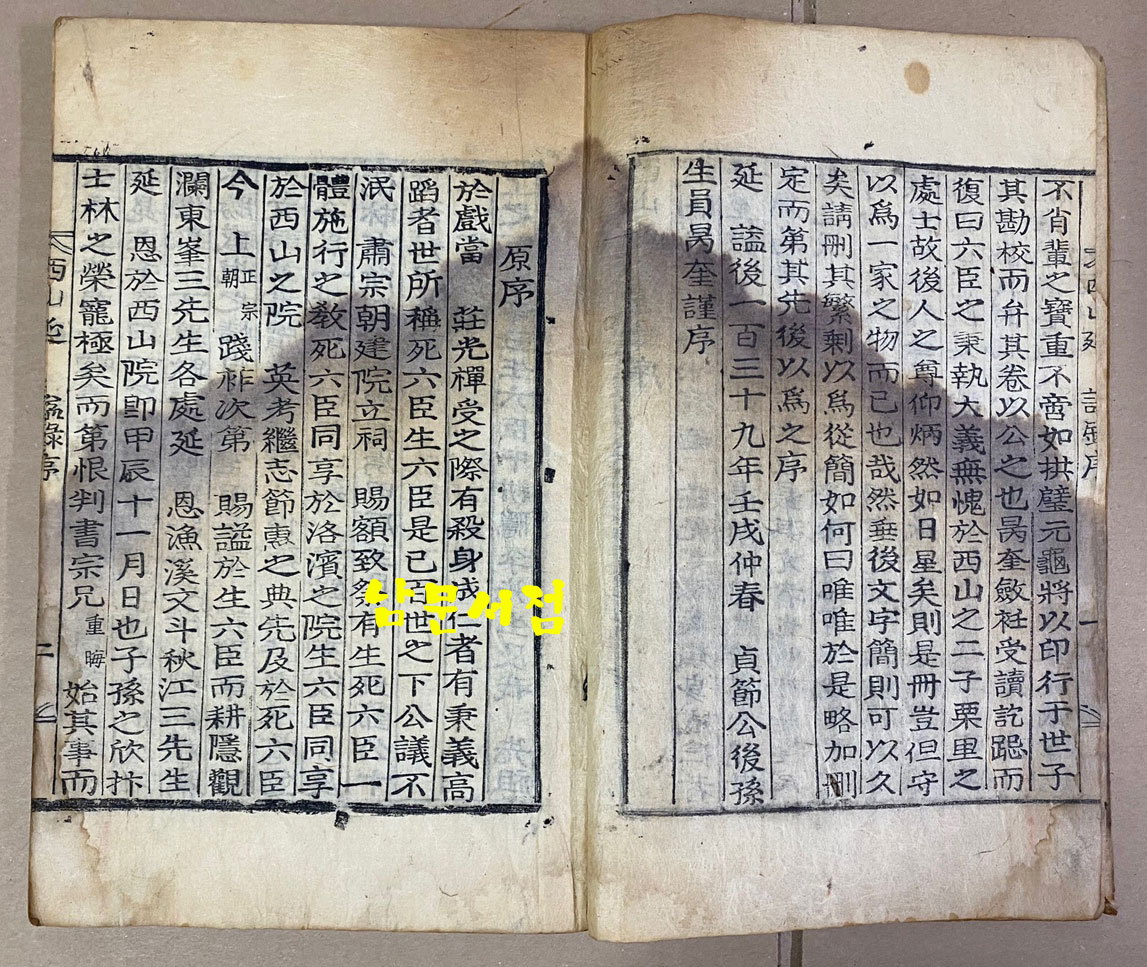 不肖輩之寶重不啻如拱璧元龜將以印行于世子
其勘校而弁其卷以公之也昺奎斂衽受讀訖跽而
復曰六臣之秉執大義無愧於西山之二子栗里之
處士故後人之尊仰炳然如日星矣則是冊豈但守
以爲一家之物而已也哉然垂後文字簡則可以久
矣請刪其繁剩以爲從簡如何曰唯唯於是略加刪
定而第其先後以爲之序
延 謚後一百三十九年壬戌仲春 貞節公後孫
生員昺奎謹序
原序
於戲當 莊光禪受之際有殺身成仁者有秉義高
蹈者世所稱死六臣生六臣是已百世之下公議不
泯 肅宗朝建院立祠 賜額致祭有生死六臣一
體施行之敎死六臣同享於洛濱之院生六臣同享
於西山之院 英考繼志節惠之典先及於死六臣
今 上正宗朝踐祚次第 賜謚於生六臣而耕隱觀
瀾東峯三先生各處延 恩漁溪文斗秋江三先生
延 恩於西山院卽甲辰十一月日也子孫之欣抃
士林之榮寵極矣而第恨判書宗兄重晦始其事而
西山 錄序
二
삼문서점